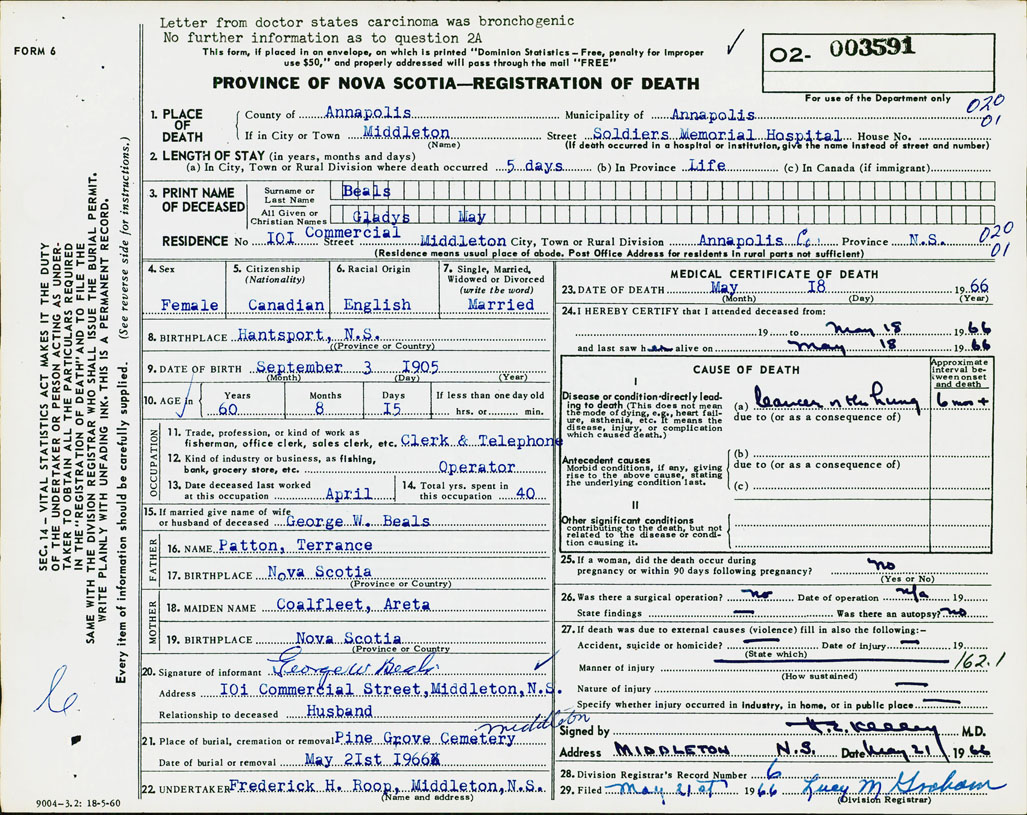 Letter from doctor states carcinoma was bronchogenic
No further information as to question 2A
FORM 6
This form, if placed in an envelope, on which is printed "Dominion Statistics – Free, penalty for improper
use $50," and properly addressed will pass through the mail "FREE"
✓
O2- 003591
PROVINCE OF NOVA SCOTIA—REGISTRATION OF DEATH
For use of the Department only
020
01
1. PLACE OF DEATH
County of Annapolis Municipality of Annapolis
If in City or Town Middleton Street Soldiers Memorial Hospital House No.
(Name) (If death occurred in a hospital or institution, give the name instead of street and number)
2. LENGTH OF STAY (in years, months and days)
(a) In City, Town or Rural Division where death occurred 5 days (b) In Province Life (c) In Canada (if immigrant)
3. PRINT NAME OF DECEASED
Surname or Last Name Beals
All Given or Christian Names Gladys May
RESIDENCE No IOI Commercial Street Middleton City, Town or Rural Division Annapolis Co. Province N.S.
020
01
(Residence means usual place of abode. Post Office Address for residents in rural parts not sufficient)
4. Sex
Female
5. Citizenship
(Nationality)
Canadian
6. Racial Origin
English
7. Single, Married,
Widowed or Divorced
(write the word)
Married
8. BIRTHPLACE Hantsport, N.S.
((Province or Country)
9. DATE OF BIRTH September 3 I905
(Month) (Day) (Year)
10. AGE in
Years Months Days If less than one day old
60 8 I5 hrs. or min.
OCCUPATION
11. Trade, profession, or kind of work as
fisherman, office clerk, sales clerk, etc. Clerk & Telephone
12. Kind of industry or business, as fishing,
bank, grocery store, etc. Operator
13. Date deceased last worked
at this occupation April
14. Total yrs. spent in
this occupation 40
15. If married give name of wife
or husband of deceased George W. Beals
FATHER
16. NAME Patton, Terrance
17. BIRTHPLACE Nova Scotia
(Province or Country)
MOTHER
18. MAIDEN NAME Coalfleet, Areta
19. BIRTHPLACE Nova Scotia
(Province or Country)
20. Signature of informant George W Beals ✓
Address IOi Commercial Street, Middleton, N.S.
Relationship to deceased Husband
21. Place of burial, cremation or removal Pine Grove Cemetery Middleton
Date of burial or removal May 2Ist I966
22. UNDERTAKER Frederick H. Roop, Middleton, N.S.
(Name and address)
MEDICAL CERTIFICATE OF DEATH
23. DATE OF DEATH May I8 1966
(Month) (Day) (Year)
24. I HEREBY CERTIFY that I attended deceased from:
19 to May 18 1966
and last saw her alive on May 18 1966
CAUSE OF DEATH
Approximate interval between onset and death
I
Disease or condition directly leading to death (This does not mean the mode of dying, e.g., heart failure, asthenia, etc. It means the disease, injury, or complication which caused death.)
(a) Cancer of the Lung 6 mos +
due to (or as a consequence of)
Antecedent causes
Morbid conditions, if any, giving rise to the above cause, stating the underlying condition last.
(b)
due to (or as a consequence of)
(c)
II
Other significant conditions
contributing to the death, but not related to the disease or condition causing it.
25. If a woman, did the death occur during
pregnancy or within 90 days following pregnancy? no
(Yes or No)
26. Was there a surgical operation? no Date of operation n/a 19
State findings — Was there an autopsy? no
27. If death was due to external causes (violence) fill in also the following:–
Accident, suicide or homicide? — Date of injury — 19
(State which)
162.1
Manner of injury
(How sustained)
Nature of injury —
Specify whether injury occurred in industry, in home, or in public place —
Signed by H.E. Kelley M.D.
Address MIDDLETON N.S. Date May 21 1966
28. Division Registrar's Record Number 6
29. Filed May 21st 1966 Lucy M Graham
(Division Registrar)
SEC. 14 – VITAL STATISTICS ACT MAKES IT THE DUTY
OF THE UNDERTAKER OR PERSON ACTING AS UNDER-
TAKER TO OBTAIN ALL THE PARTICULARS REQUIRED
IN THE "REGISTRATION OF DEATH" AND TO FILE THE
SAME WITH THE DIVISION REGISTRAR WHO SHALL ISSUE THE BURIAL PERMIT.
WRITE PLAINLY WITH UNFADING INK. THIS IS A PERMANENT RECORD.
Every item of information should be carefully supplied. (See reverse side for instructions.)
9004–3.2: 18-5-60